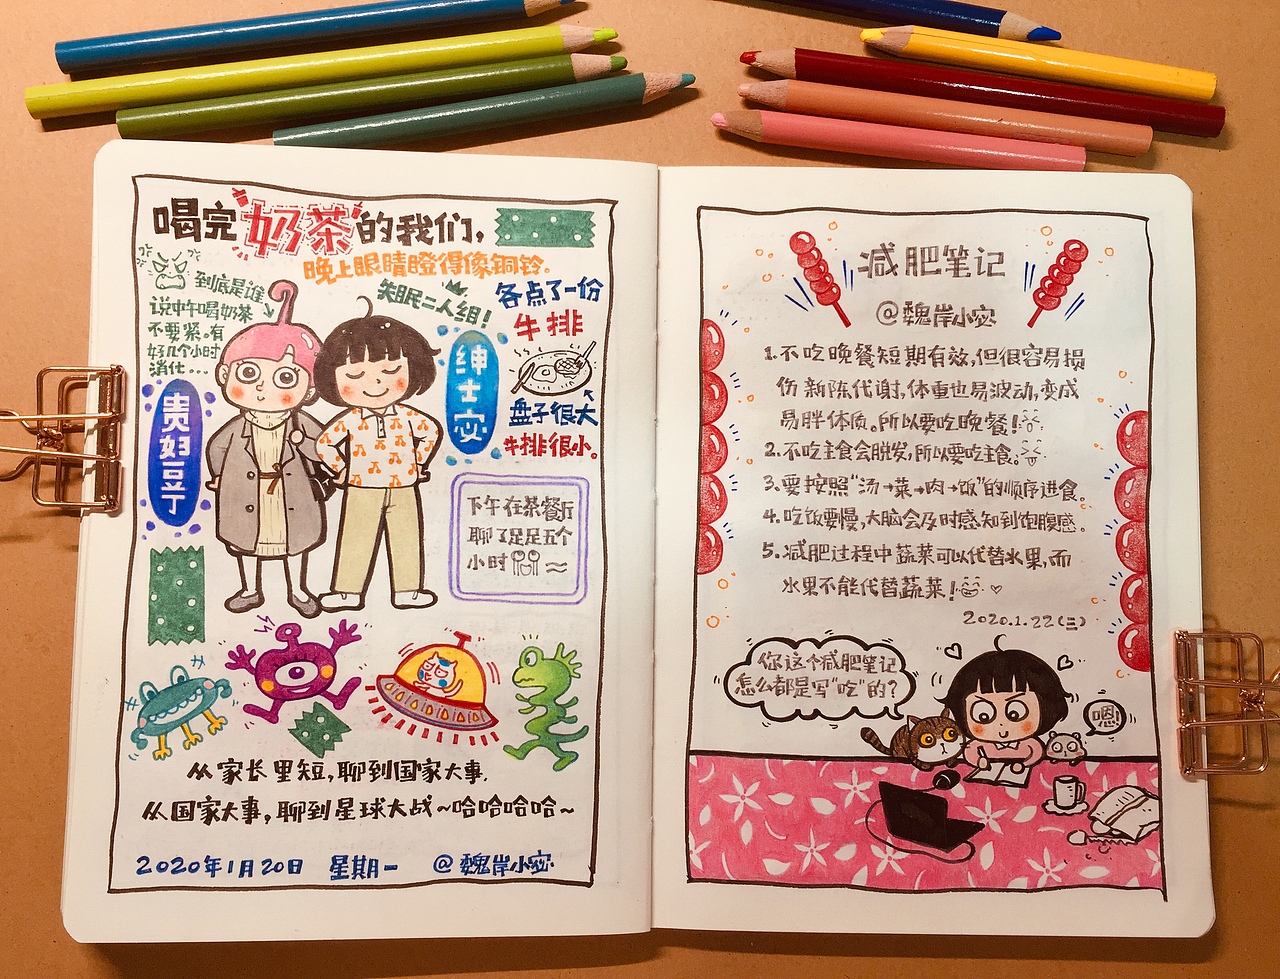 喝完"奶茶"的我们,
晚上眼睛瞪得像铜铃。
到底是谁
说中午喝奶茶
不要紧。有
好几个小时
消化...
失眠二人组!
各点了一份
牛排
盘子很大
牛排很小。
贵妇豆丁
绅士宓
下午在茶餐厅
聊了足足五个
小时
从家长里短,聊到国家大事.
从国家大事,聊到星球大战~哈哈哈哈~
2020年1月20日 星期一 @魏岸小宓
减肥笔记
@魏岸小宓
1.不吃晚餐短期有效,但很容易损
伤新陈代谢,体重也易波动,变成
易胖体质。所以要吃晚餐!
2.不吃主食会脱发,所以要吃主食。
3.要按照"汤→菜→肉→饭"的顺序进食。
4.吃饭要慢,大脑会及时感知到饱腹感。
5.减肥过程中蔬菜可以代替水果,而
水果不能代替蔬菜!
2020.1.22(三)
你这个减肥笔记
怎么都是写"吃"的?
嗯!